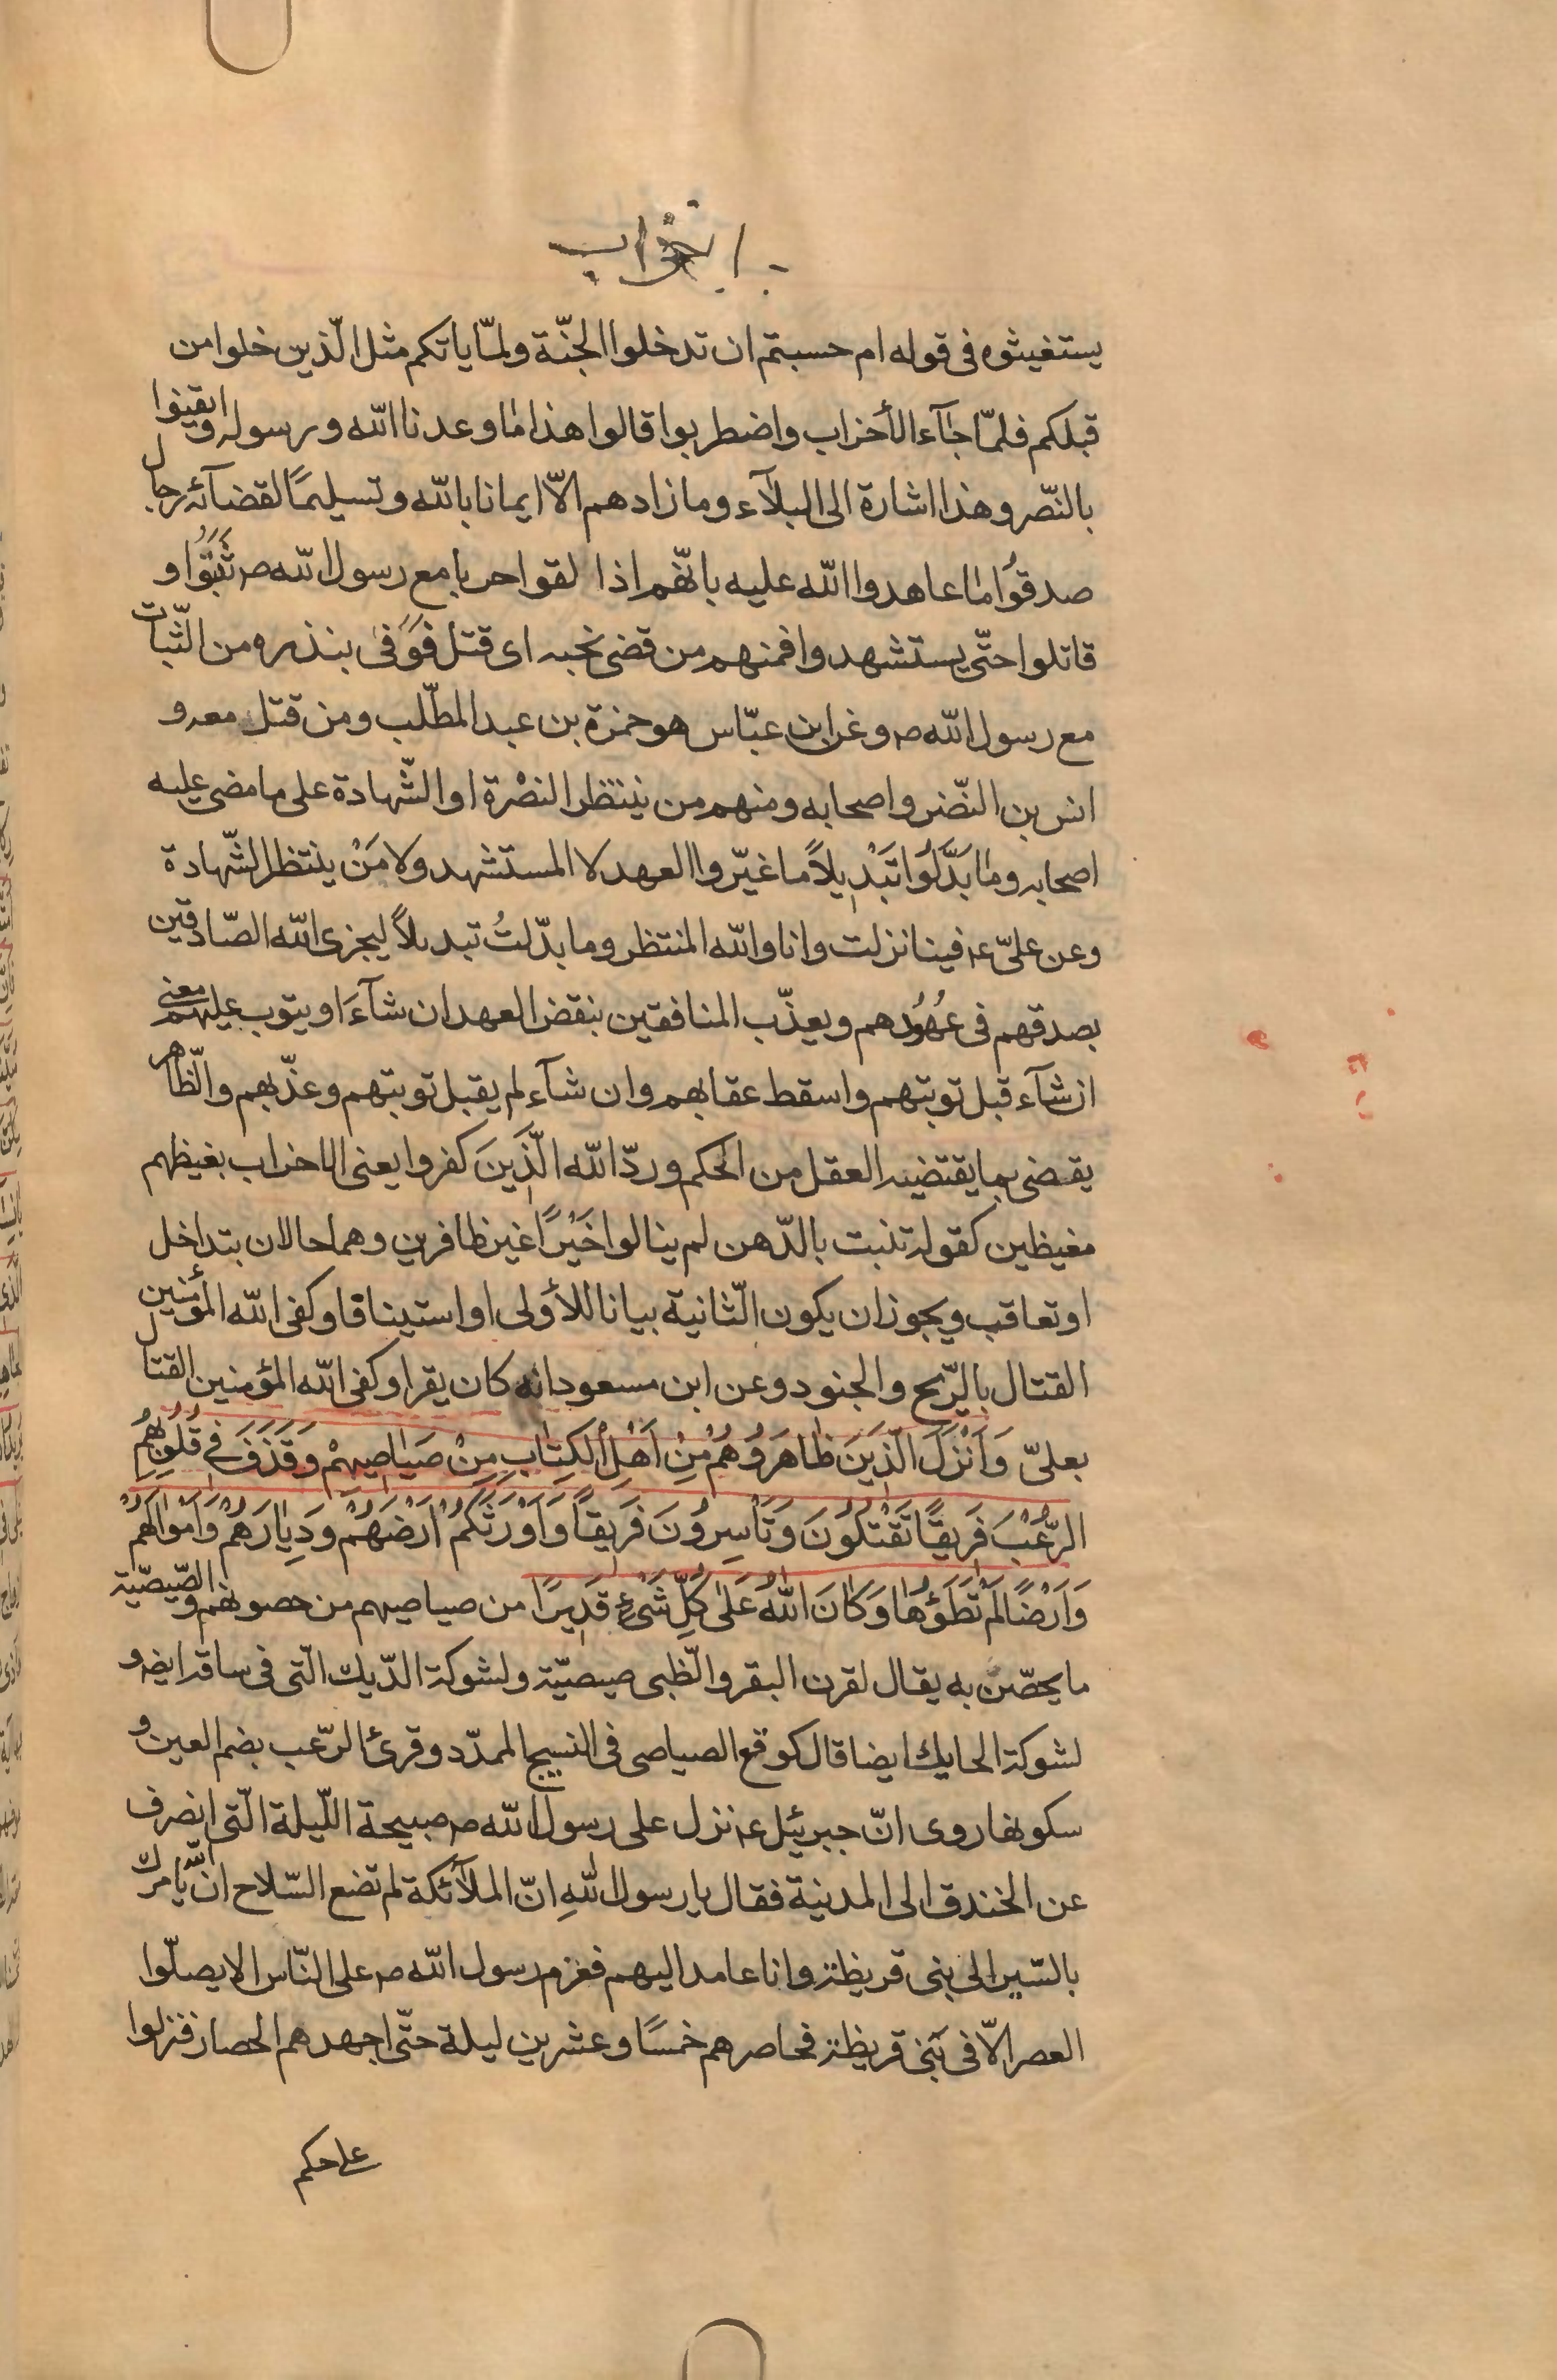 الاحزاب
يستغيثوه فى قوله ام حسبتم ان تدخلوا الجنّة ولمّا ياتكم مثل الّذين خلوا من
قبلكم فلمّا جآء الأحزاب واضطربوا قالوا هذا ما وعدنا الله ورسوله وايقنوا
بالنّصر وهذا اشارة الى البلآء وما زادهم الّا ايمانا بالله وتسليمًا لقضآئه رجال
صدقوُا ما عاهدوا الله عليه بانّهم اذا لقوا حربا مع رسول الله ص ثَبَتُوا و
قاتلوا حتّى يستشهدوا فمنهم من قضى نحبه اى قتل فوَفى بنذره من الثّبات
مع رسول الله ص وعن ابن عبّاس هو حمزة بن عبد المطّلب ومن قتل معه و
انس بن النّضر واصحابه ومنهم من ينتظر النصْرة او الشّهادة على ما مضى عليه
اصحابه وما بَدَّلوُا تَبْديلاً ما غيّروا العهد لا المستشهد ولا مَنْ ينتظر الشّهادة
وعن علىّ ع فينا نزلت وانا والله المنتظر وما بدّلتُ تبديلاً ليجزى الله الصّادقين
بصدقهم فى عهُوُدهم ويعذّب المنافقين بنقض العهد ان شآءَ او يتوب عليهم معنى
ان شآء قبل توبتهم واسقط عقابهم وان شآء لم يقبل توبتهم وعذّبهم والظّاهر
يقضى بما يقتضيه العقل من الحكم وردّ الله الّذَينَ كفروا يعنى الاحزاب بغيظهم
مغيظين كقوله تنبت بالدّهن لم ينالوا خَيْرًا غير ظافرين وهما حالان بتداخل
او تعاقب ويجوز ان يكون الثّانية بيانا للأولى او استينافا وكفى الله المؤمنين
القتال بالرّيح والجنود وعن ابن مسعود انه كان يقرا وكفى الله المؤمنين القتال
بعلىّ وَاَنْزَلَ الَّذينَ ظاهَرَوُهُمْ مِنْ اَهْلِ الكِتابِ مِنْ صَياصيهِمْ وَقَذَفَ فى قُلُوبِهِمُ
الرُّعْبَ فَريقًا تَقْتُلُونَ وَتَاْسِروُنَ فَريقاً وَاَوْرَثَكُمْ اَرْضَهُمْ وَدِيارَهُمْ وَاَمْوالَهُمْ
وَاَرْضًا لَمْ تَطَؤُها وَكانَ اللّهُ عَلى كُلِّ شَىْءٍ قَديرًا من صياصيهم من حصونهم والصّيصّية
ما يحصّن به يقال لقرن البقر والظّبى صيصيّة ولشوكة الدّيك الّتى فى ساقه ايضه و
لشوكة الحايك ايضا قال كوقع الصياصى فى النسيج الممدّد وقرئ الرّعب بضم العين و
سكونها روى انّ جبرئيل ع نزل على رسول الله ص صبيحة اللّيلة الّتى انصرف
عن الخندق الى المدينة فقال يا رسول اللهِ انّ الملآئكة لم تضع السّلاح انّ الله يامرك
بالسّير الى بنى قريظة وانا عامد اليهم فعزم رسول الله ص على النّاس الا يصلّوا
العصر الّا فى بَنى قريظة فحاصرهم خمسًا وعشرين ليلة حتّى اجهدهم الحصار فنزلوا
على حكم